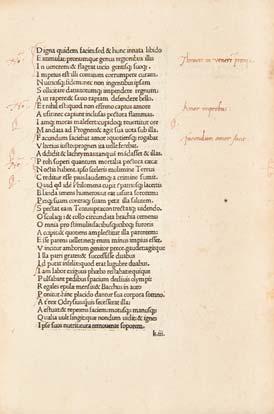 D igna quidem facies: sed & hunc innata libido
E xtimulat: pronumque genus regionibus illis
I n uenerem & flagrat uitio gentisque suoque.
I mpetus est illi comitum corrumpere curam
N utricisque fidem: nec non ingentibus ipsam
S ollicitare datis: totumque impendere regnum
A ut rapere: & sæuo raptam defendere bello.
E t nihil est quod non effreno captus amore
A usit: nec capiunt inclusas pectora flammas
I amque moras male fert: cupidoque reuertitur ore
M andata ad Prognes: & agit sua uota sub illa.
F acundum faciebat amor: quotiensque rogabat
V lterius iusto: Prognen ita uelle ferebat
A ddidit & lachrymas: tanquam mandasset & illas
P roh superi quantum mortalia pectora cæcæ
N octis habent. ipso sceleris molimine Tereus
C reditur esse pius: laudemque a crimine sumit
Q uid quod idem Philomela cupit: patriosque lacertis
B landa tenens humeros: ut eat uisura sororem:
P erque suam contraque suam petit ipsa salutem
S pectat eam Tereus: præcontrectatque uidendo
O sculaque: & collo circundata brachia cernens
O mnia pro stimulis facibusque ciboque furoris
A ccipit: & quotiens amplectitur illa parentem
E sse parens uellet: neque enim minus impius esset
V incitur ambarum genitor prece: gaudet: agitque
I lla patri grates: & successisse duabus
I d putat infelix: quod erat lugubre duabus.
I am labor exiguus phœbo restabat: equique
P ulsabant pedibus spacium decliuis olympi
R egales epulæ mensis: & Bacchus in auro
P onitur. hinc placido dantur sua corpora somno
A t rex Odrysius
A estuat: & repetens faciem: motusque: manusque
Q ualia uult fingit: quæ nondum uidit: & ignes
I pse suos nutrit cura remouente soporem
k.iii.